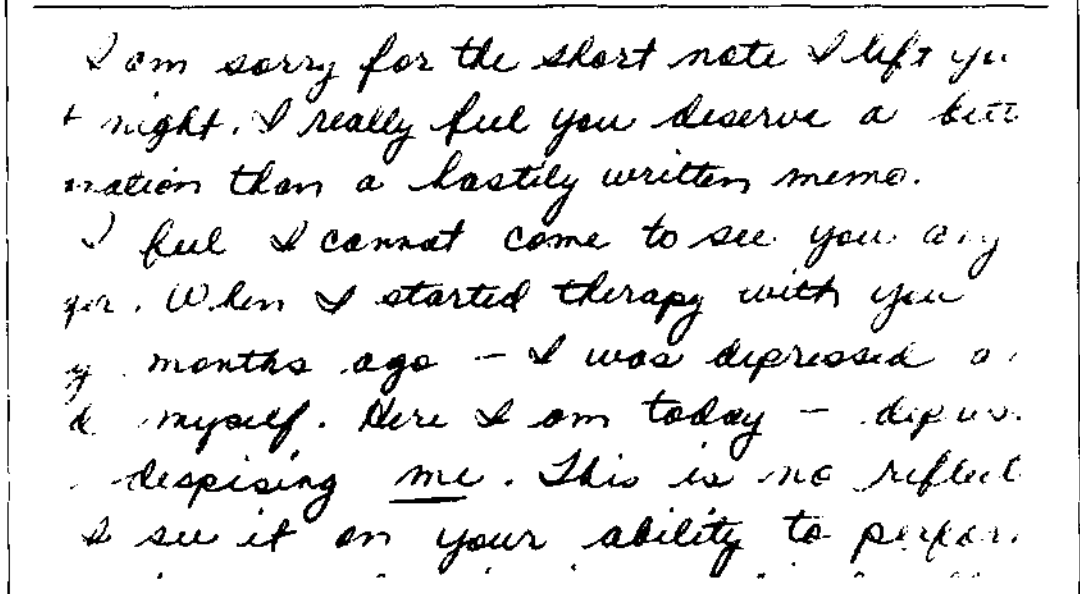 I am sorry for the short note I left
night. I really feel you deserve a
than a hastily written memo.
I feel I cannot come to see you
. When I started therapy with you
months ago - I was depressed
myself. Here I am today -
despising me. This is no
I see it on your ability to